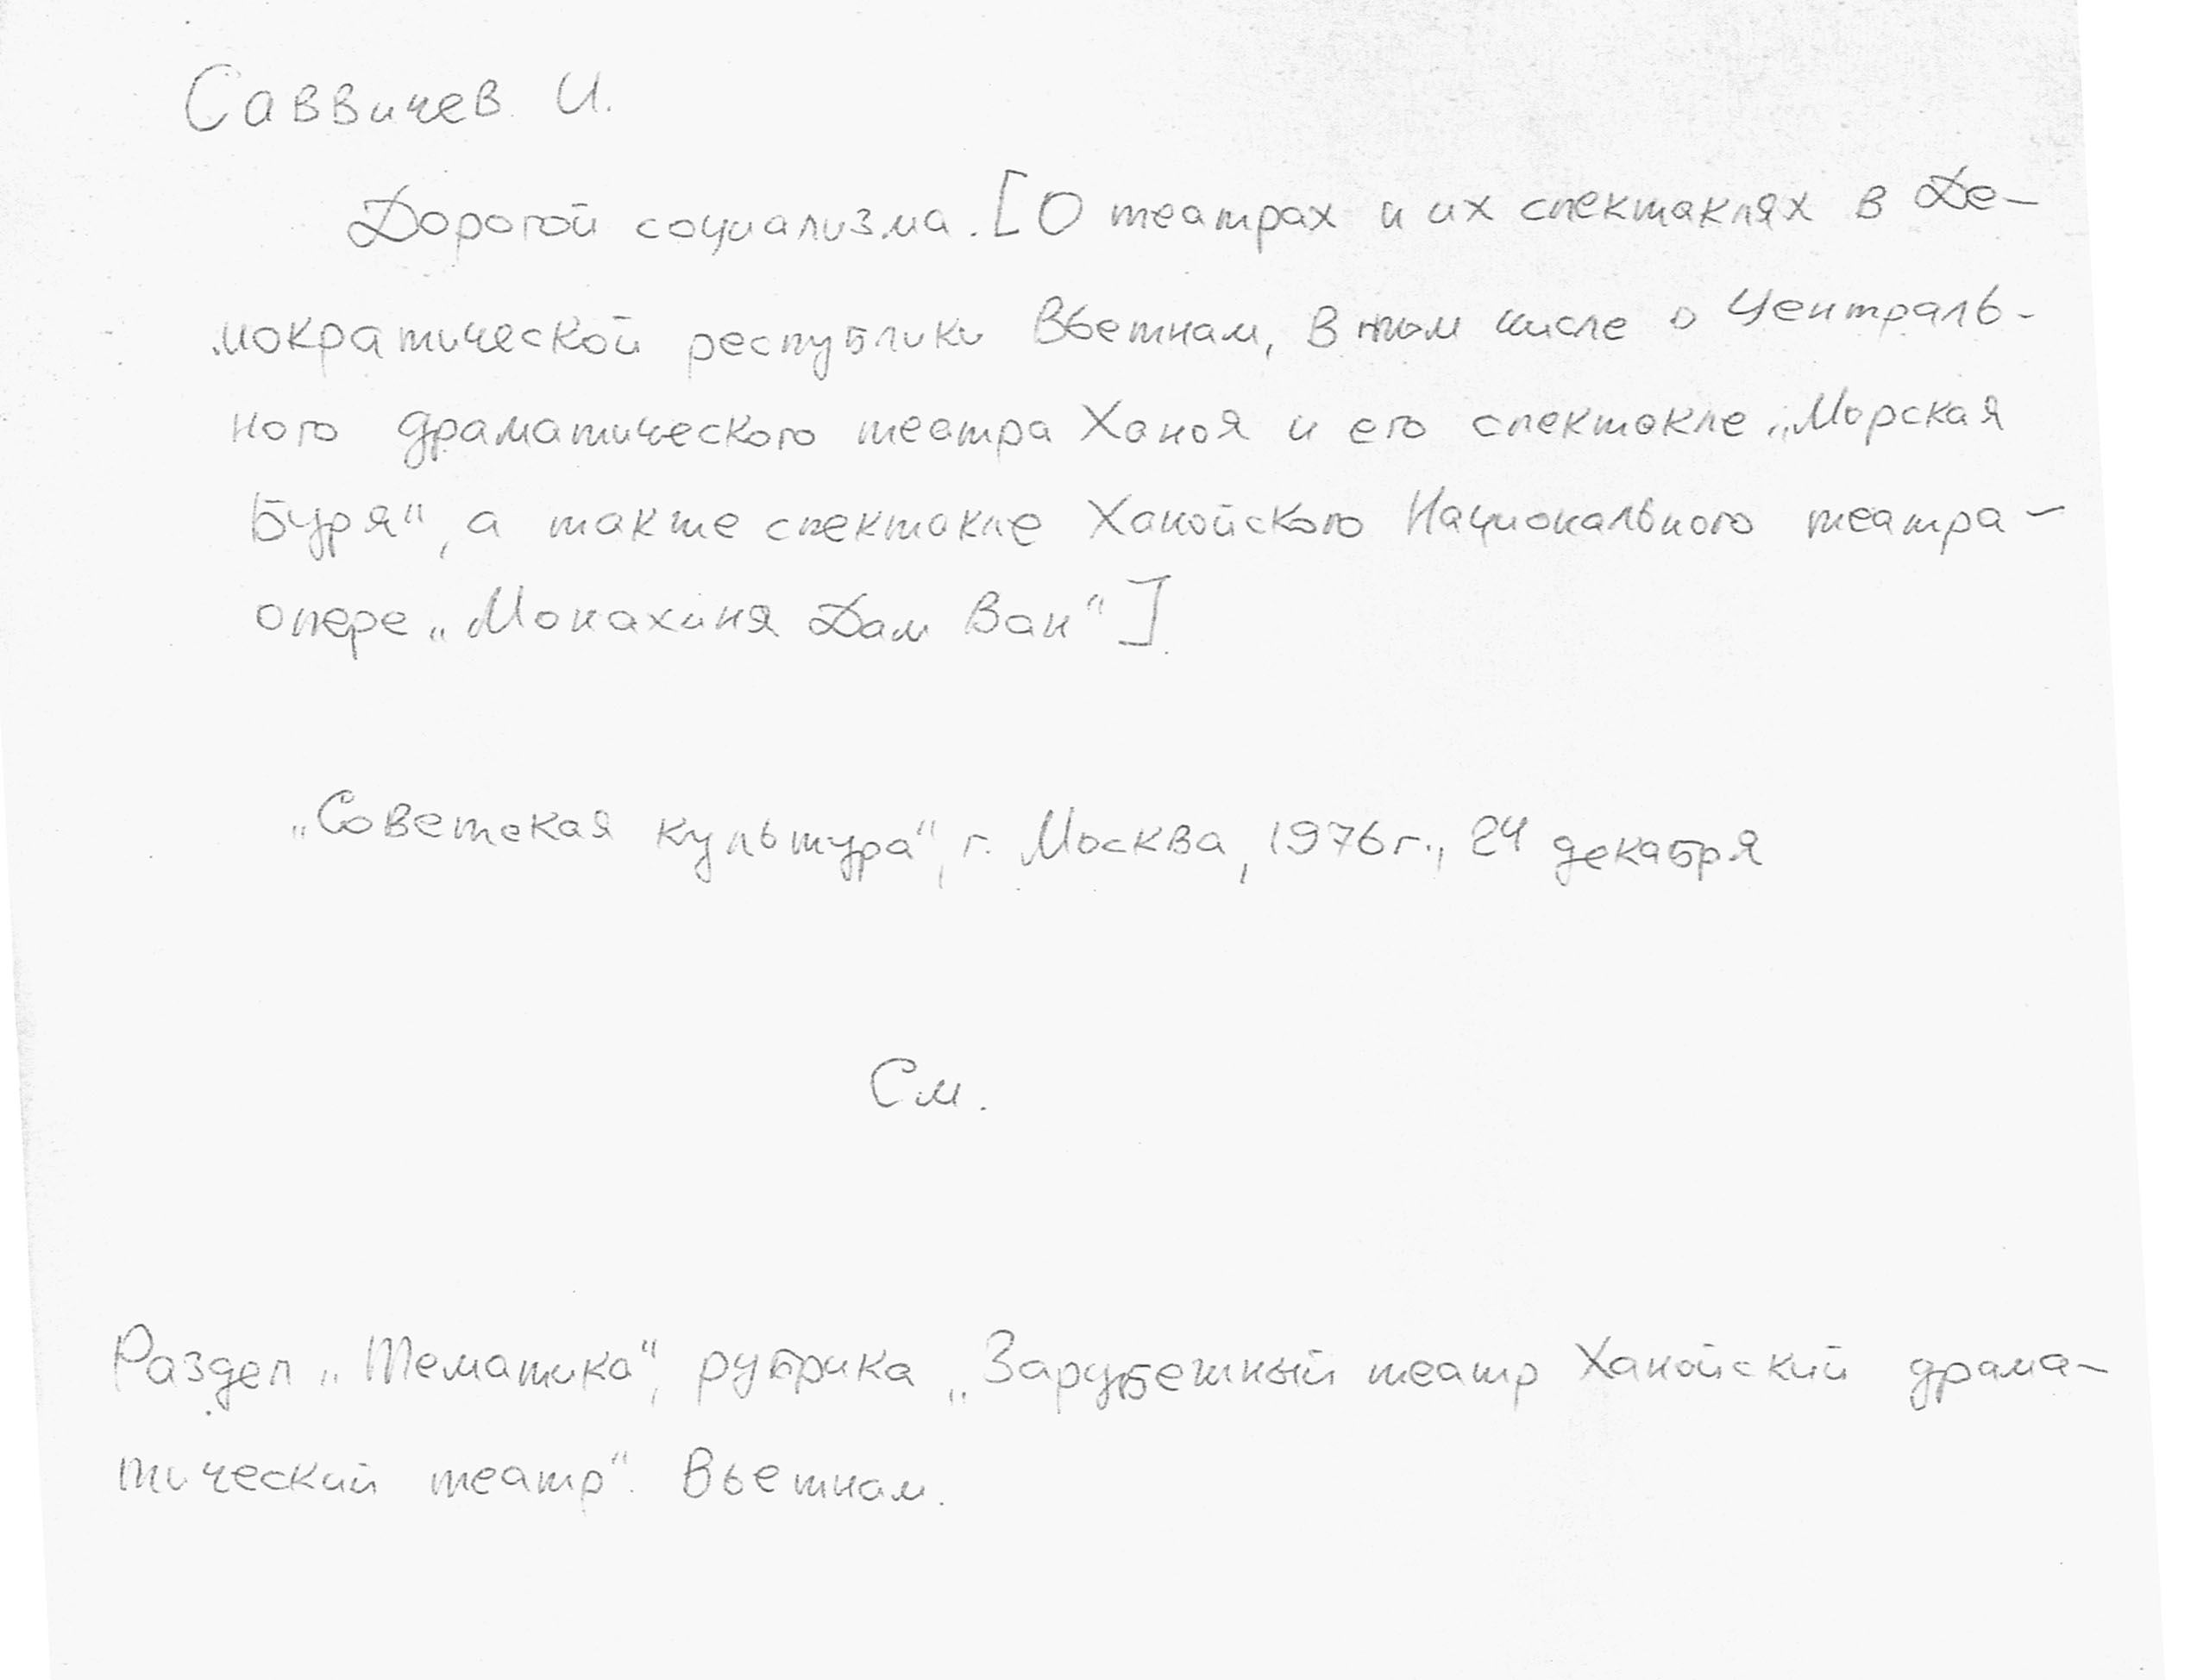 Саввичев И.
Дорогой социализма. [О театрах и их спектаклях в Де-
мократической республики Вьетнам, в том числе о Централь-
ного драматического театра Ханоя и его спектакле „Морская
Буря“, а также спектакле Ханойского Национального театра -
опере „Монахиня Дам Ван“]
„Советская культура“, г. Москва, 1976 г., 24 декабря
См.
Раздел „Тематика“, рубрика „Зарубежный театр Ханойский драма-
тический театр“. Вьетнам.